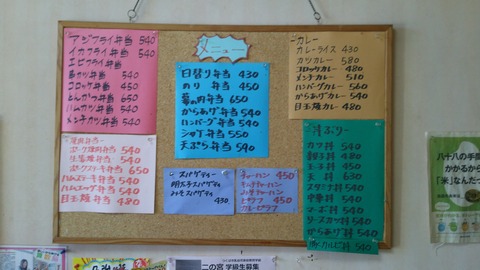 メニュー
アジフライ弁当 540
イカフライ弁当 540
エビフライ弁当
540
コロッケ弁当 450
とんかつ弁当 650
ハムカツ弁当 540
メンチカツ弁当 540
日替り弁当 430
のり弁当 450
幕の内弁当 650
からあげ弁当 540
ハンバーグ弁当 540
シャケ弁当 550
天ぷら弁当 590
カレー
カレーライス 430
カツカレー 580
コロッケカレー 480
メンチカレー 510
ハンバーグカレー 560
からあげカレー 540
目玉焼カレー 480
弁当
540
540
650
540
ハムエッグ弁当 540
目玉焼弁当 480
スパゲティー
明太子スパゲティ
みそスパゲティ
430
チャーハン 450
キムチチャーハン
ピラフ 450
カレーピラフ
丼ぶり
カツ丼 540
親子丼 480
玉子丼 450
天丼 630
スタミナ丼 540
中華丼 540
マーボ丼 540
ソースカツ丼 540
からあげ丼 540
カルビ丼 530
八十八の手間
かかるから
「米」なんだっ
二の宮 学級生募集